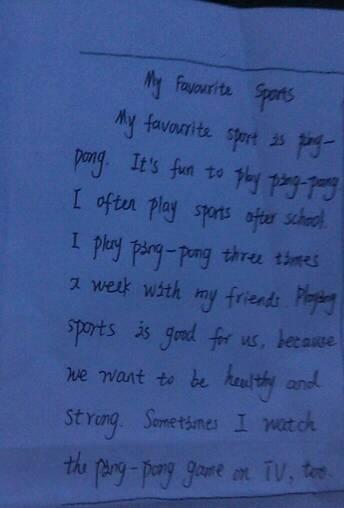 My Favourite Sports
My favourite sport is ping-
pong. It's fun to play ping-pong
I often play sports after school.
I play ping-pong three times
a week with my friends. Playing
sports is good for us, because
we want to be healthy and
strong. Sometimes I watch
the ping-pong game on TV, too.